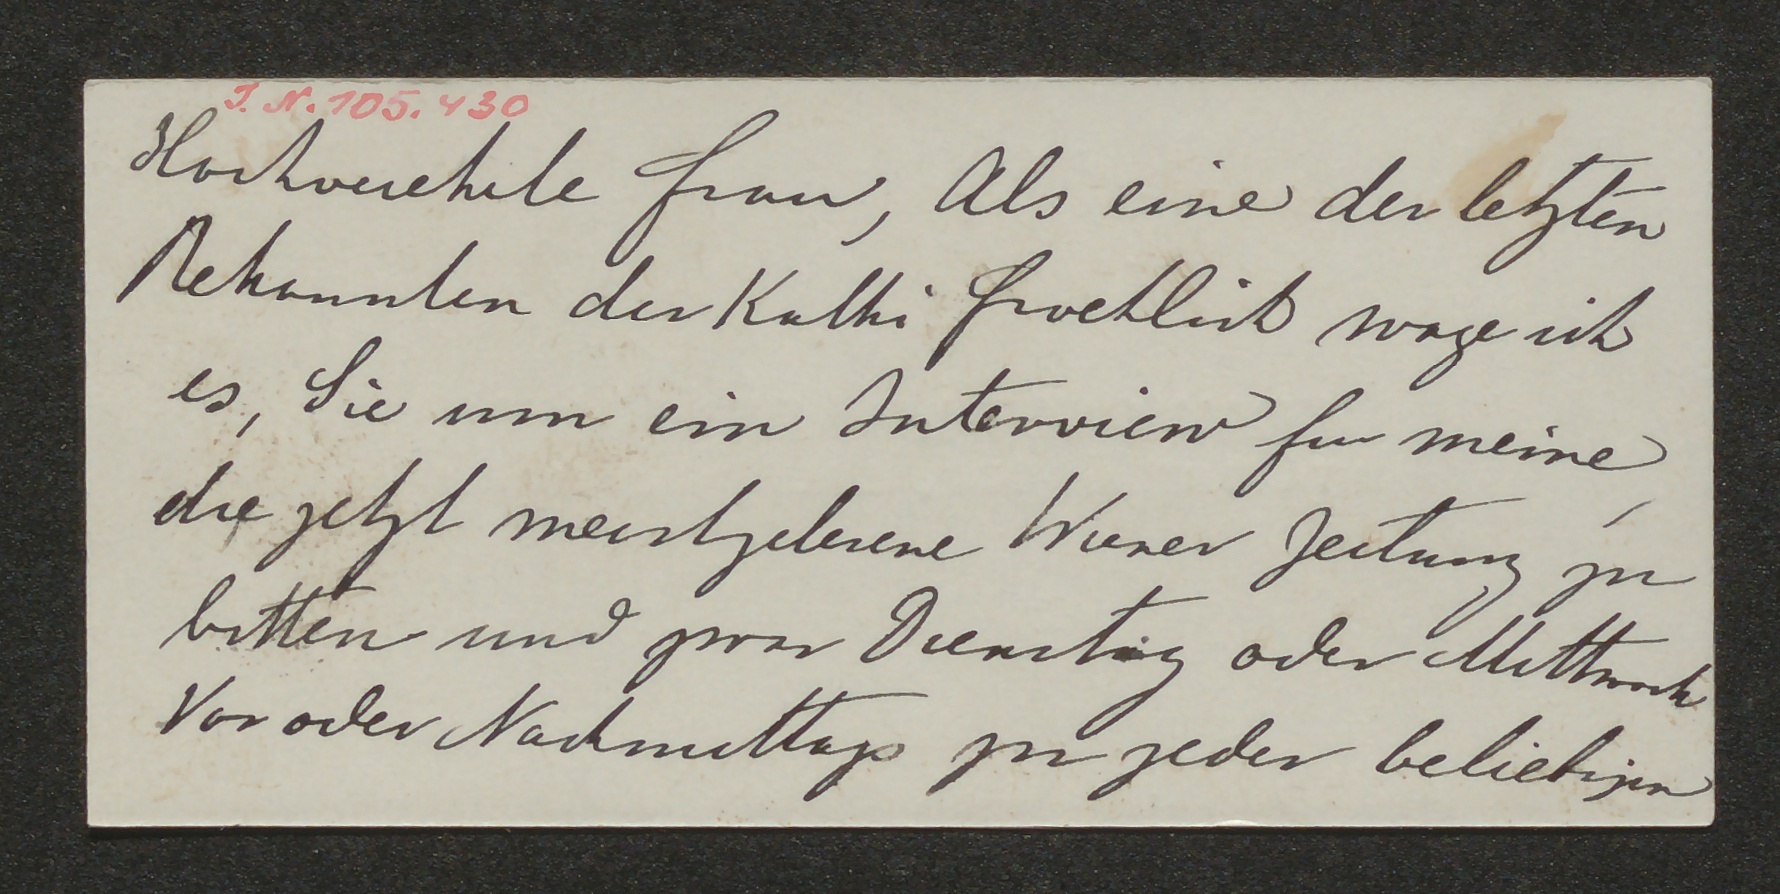 J. N. 105.430
Hochverehrte Frau, Als eine der letzten
Bekannten der Kathi Froehlich wage ich
es, Sie um ein Interview fur meine,
die jetzt meistgelesene Wiener Zeitung zu
bitten und zwar Dienstag oder Mittwoch
Vor oder Nachmittags zu jeder beliebigen